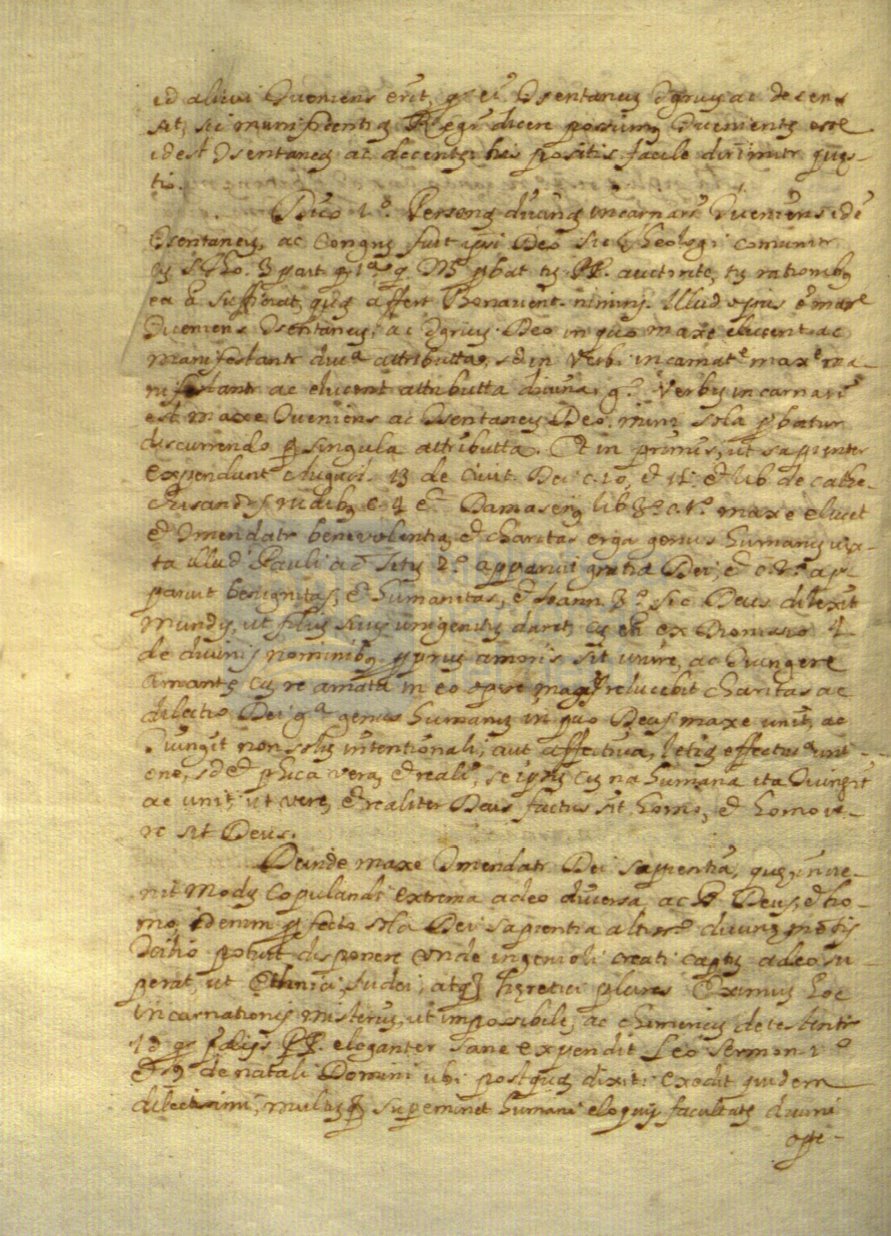 id alicui Conveniens erit, qd ei Consentaneū Congruū ac decens
sit, sic dicere possumus Conveniens esse
idest Consentaneū ac decens; his positis facile dirimitr quęs-
tio.
Dico 1º. Personā divinā incarnari Conveniens idē
Consentaneū, ac Congruū fuit ipsi Deo sic Theologi comuniter
cū S. Tho. 3 part q. 1ª pbat tū PP. auctritte, tū rationibȝ
ea sufficiat, quā affert Bonavent. nimirū. Illud opus ē maxe
Conveniens Consentaneū, ac Congruū Deo in quo maxe elucent ac
manifestantr divª attributta, sed in Verbi incarnatᵉ maxᵉ ma-
nifestantr ac elucent attributta divina, gº. Verbū incarnari
est maxe Conveniens ac Consentaneū Deo. minr sola pbatur
discurrendo p singula attributta. Et in primis, ut sapienter
expendunt 13 de Civit. Dei c. 10, et 11 et lib. de cathe-
chisandis rudibȝ c. 4 et Damascenȝ lib 3º. c. 1º. maxe elucet
et Comendatr benevolentia, et charitas erga genus humanū iux-
ta illud Pauli ad Titū 2º. apparuit gratia Dei, et c. 3º. ap-
paruit benignitas, et humanitas, et Ioann. 3º. sic Deus dilexit
mundū, ut filiū suū unigenitū daret, cū eñ ex Dionisio 4
de divinis nominibȝ ppriū amoris sit unire, ac Coniungere
amantē cū re amata in eo opere magis relucebit charitas ac
dilectio Dei gª genus humanū in quo Deus maxe unit, ac
Coniungit non solū intentionali, aut affectiva, l etiā effectiva unt
one, sed et phica vera, et reali, se ipsū cū na humana ita Coniungit
ac unit, ut vere, et realiter Deus factus sit homo, et homo ve-
re sit Deus.
Deinde maxe Comendatr Dei sapientia, quę inve-
nit modū copulandi extrema adeo diversa, ac st Deus, et ho-
mo, idenim pfecto sola Dei sapientia
potuit disponere unde ingenioli creati captū adeo su-
perat, ut Ethnici, Iudei, atqȝ hęretici plures Eximiū hoc
incarnationis misteriū, ut impossibile, ac chimericū detestentr
id PP. eloganter sane expendit Leo sermon 1º
et 9 de natali Domini ubi postquā dixit: Excedit quidem
dilectissimi, multūqȝ supeminet humani eloquij facultatē divini
ope-